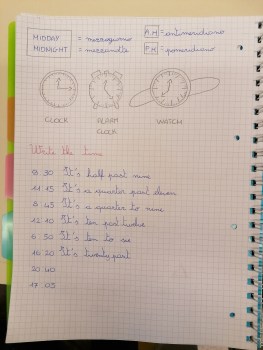 MIDDAY = mezzogiorno
A.M = antimeridiano
MIDNIGHT = mezzanotte
P.M = pomeridiano
CLOCK
ALARM
CLOCK
WATCH
Write the time
30 It's half past
11 15 It's a quarter past eleven
45 It's a quarter to nine
12 10 It's ten past twelve
50 It's ten to
16 20 It's twenty past
20 40
17 05